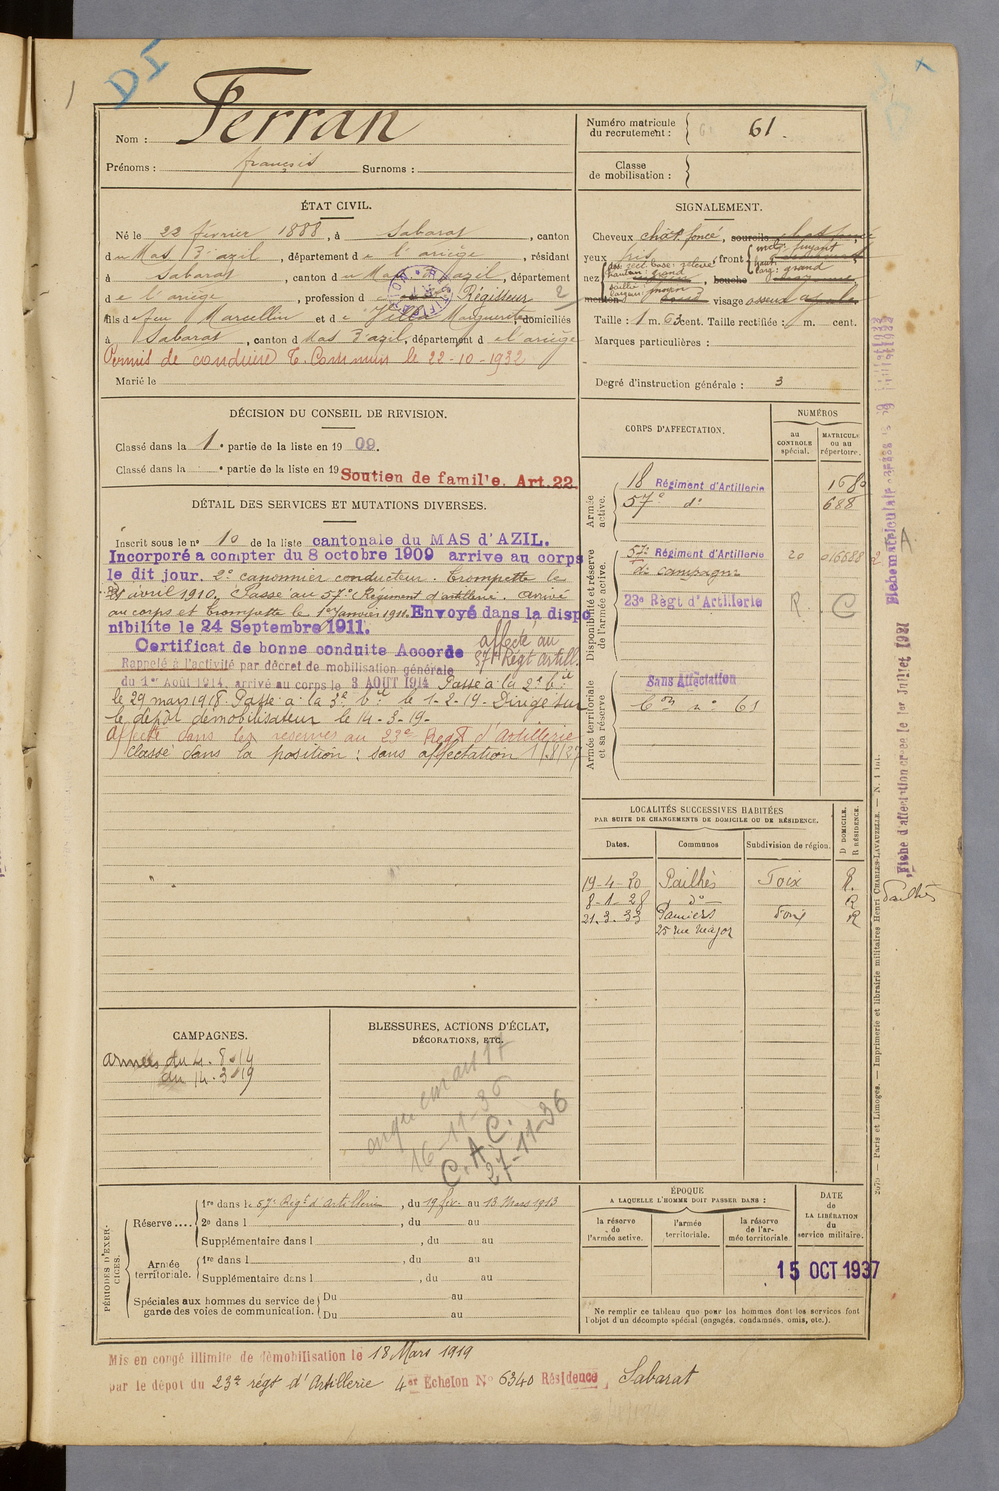 DI
Nom : Ferran
Prénoms : françois Surnoms :
Numéro matricule
du recrutement : 61.
Classe
de mobilisation :
ÉTAT CIVIL.
Né le 22 février 1888, à Sabarat, canton
du Mas d'azil, département de l'ariège, résidant
à Sabarat, canton du Mas d'azil, département
de l'ariège, profession de Régisseur
fils de feu Marcellin et de Marguerite, domiciliés
à Sabarat, canton d Mas d'azil, département d el ariège
Permis de conduire T. Commun le 22-10-1932
Marié le
SIGNALEMENT.
Cheveux chat. foncé, sourcils
yeux gris front fuyant
haut. larg. grand
nez bouche
menton visage osseux
Taille : 1 m. 63 cent. Taille rectifiée : m. cent.
Marques particulières :
Degré d'instruction générale : 3
DÉCISION DU CONSEIL DE REVISION.
Classé dans la 1e partie de la liste en 1909.
Classé dans la e partie de la liste en 19
Soutien de famille. Art. 22
DÉTAIL DES SERVICES ET MUTATIONS DIVERSES.
Inscrit sous le n° 10 de la liste cantonale du MAS d'AZIL.
Incorporé a compter du 8 octobre 1909 arrive au corps
le dit jour. 2e canonnier conducteur. Trompette le
avril 1910. Classé au 57e Régiment d'artillerie. Arrivé
au corps et trompette le 1er Janvier 1911. Envoyé dans la dispo
nibilite le 24 Septembre 1911.
Certificat de bonne conduite Accordé affecté au
57e Régt artill.
Rappelé à l'activité par décret de mobilisation générale
du 1er Août 1914, arrivé au corps le 3 AOUT 1914 Passé à la 2e bie
le 29 mars 1918. Passé à la 3e bie le 1-2-19- Dirigé sur
le dépôt démobilisateur le 14-3-19-
Affecté dans les réserves au 23e Regt d'Artillerie
Classé dans la position : sans affectation 1/8/27
CORPS D'AFFECTATION.
NUMÉROS
au
CONTROLE
spécial.
MATRICULE
ou au
répertoire.
Armée
active.
18 Régiment d'Artillerie
57e d° 688
Disponibilité et réserve
de l'armée active.
57e Régiment d'Artillerie 20 016688
de campagne
23e Régt d'Artillerie R. C
Armée territoriale
et sa réserve
Sans Affectation
Con n° 61
LOCALITÉS SUCCESSIVES HABITÉES
PAR SUITE DE CHANGEMENTS DE DOMICILE OU DE RÉSIDENCE.
Dates. Communes Subdivision de région.
D. DOMICILE.
R. RÉSIDENCE.
19-4-20 Pailhès Foix R.
8-1-28 d° R
21.3.33 Pamiers Foix R
25 rue Major
CAMPAGNES.
armées du 4-8-14
du 14-3-19
BLESSURES, ACTIONS D'ÉCLAT,
DÉCORATIONS, ETC.
16-11-36
C.A.C.
27-11-36
PÉRIODES D'EXERCICES.
Réserve....
1re dans le 57e Regt d'artillerie, du 19 fév. au 13 Mars 1913
2e dans l , du au
Supplémentaire dans l , du au
Armée
territoriale.
1re dans l , du au
Supplémentaire dans l , du au
Spéciales aux hommes du service de
garde des voies de communication.
Du au
Du au
ÉPOQUE
A LAQUELLE L'HOMME DOIT PASSER DANS :
la réserve
de
l'armée active.
l'armée
territoriale.
la réserve
de l'ar-
mée territoriale
DATE
de
LA LIBÉRATION
du
service militaire.
15 OCT 1937
Ne remplir ce tableau que pour les hommes dont les services font
l'objet d'un décompte spécial (engagés, condamnés, omis, etc.).
Mis en congé illimité de démobilisation le 18 Mars 1919
par le dépôt du 23e régt d'Artillerie 4e Echelon No 6340 Résidence, Sabarat
Fiche d'affectation créée le 1er Juillet 1921
Pailhès
Paris et Limoges. — Imprimerie et librairie militaires Henri CHARLES-LAVAUZELLE. — N. 1 int.